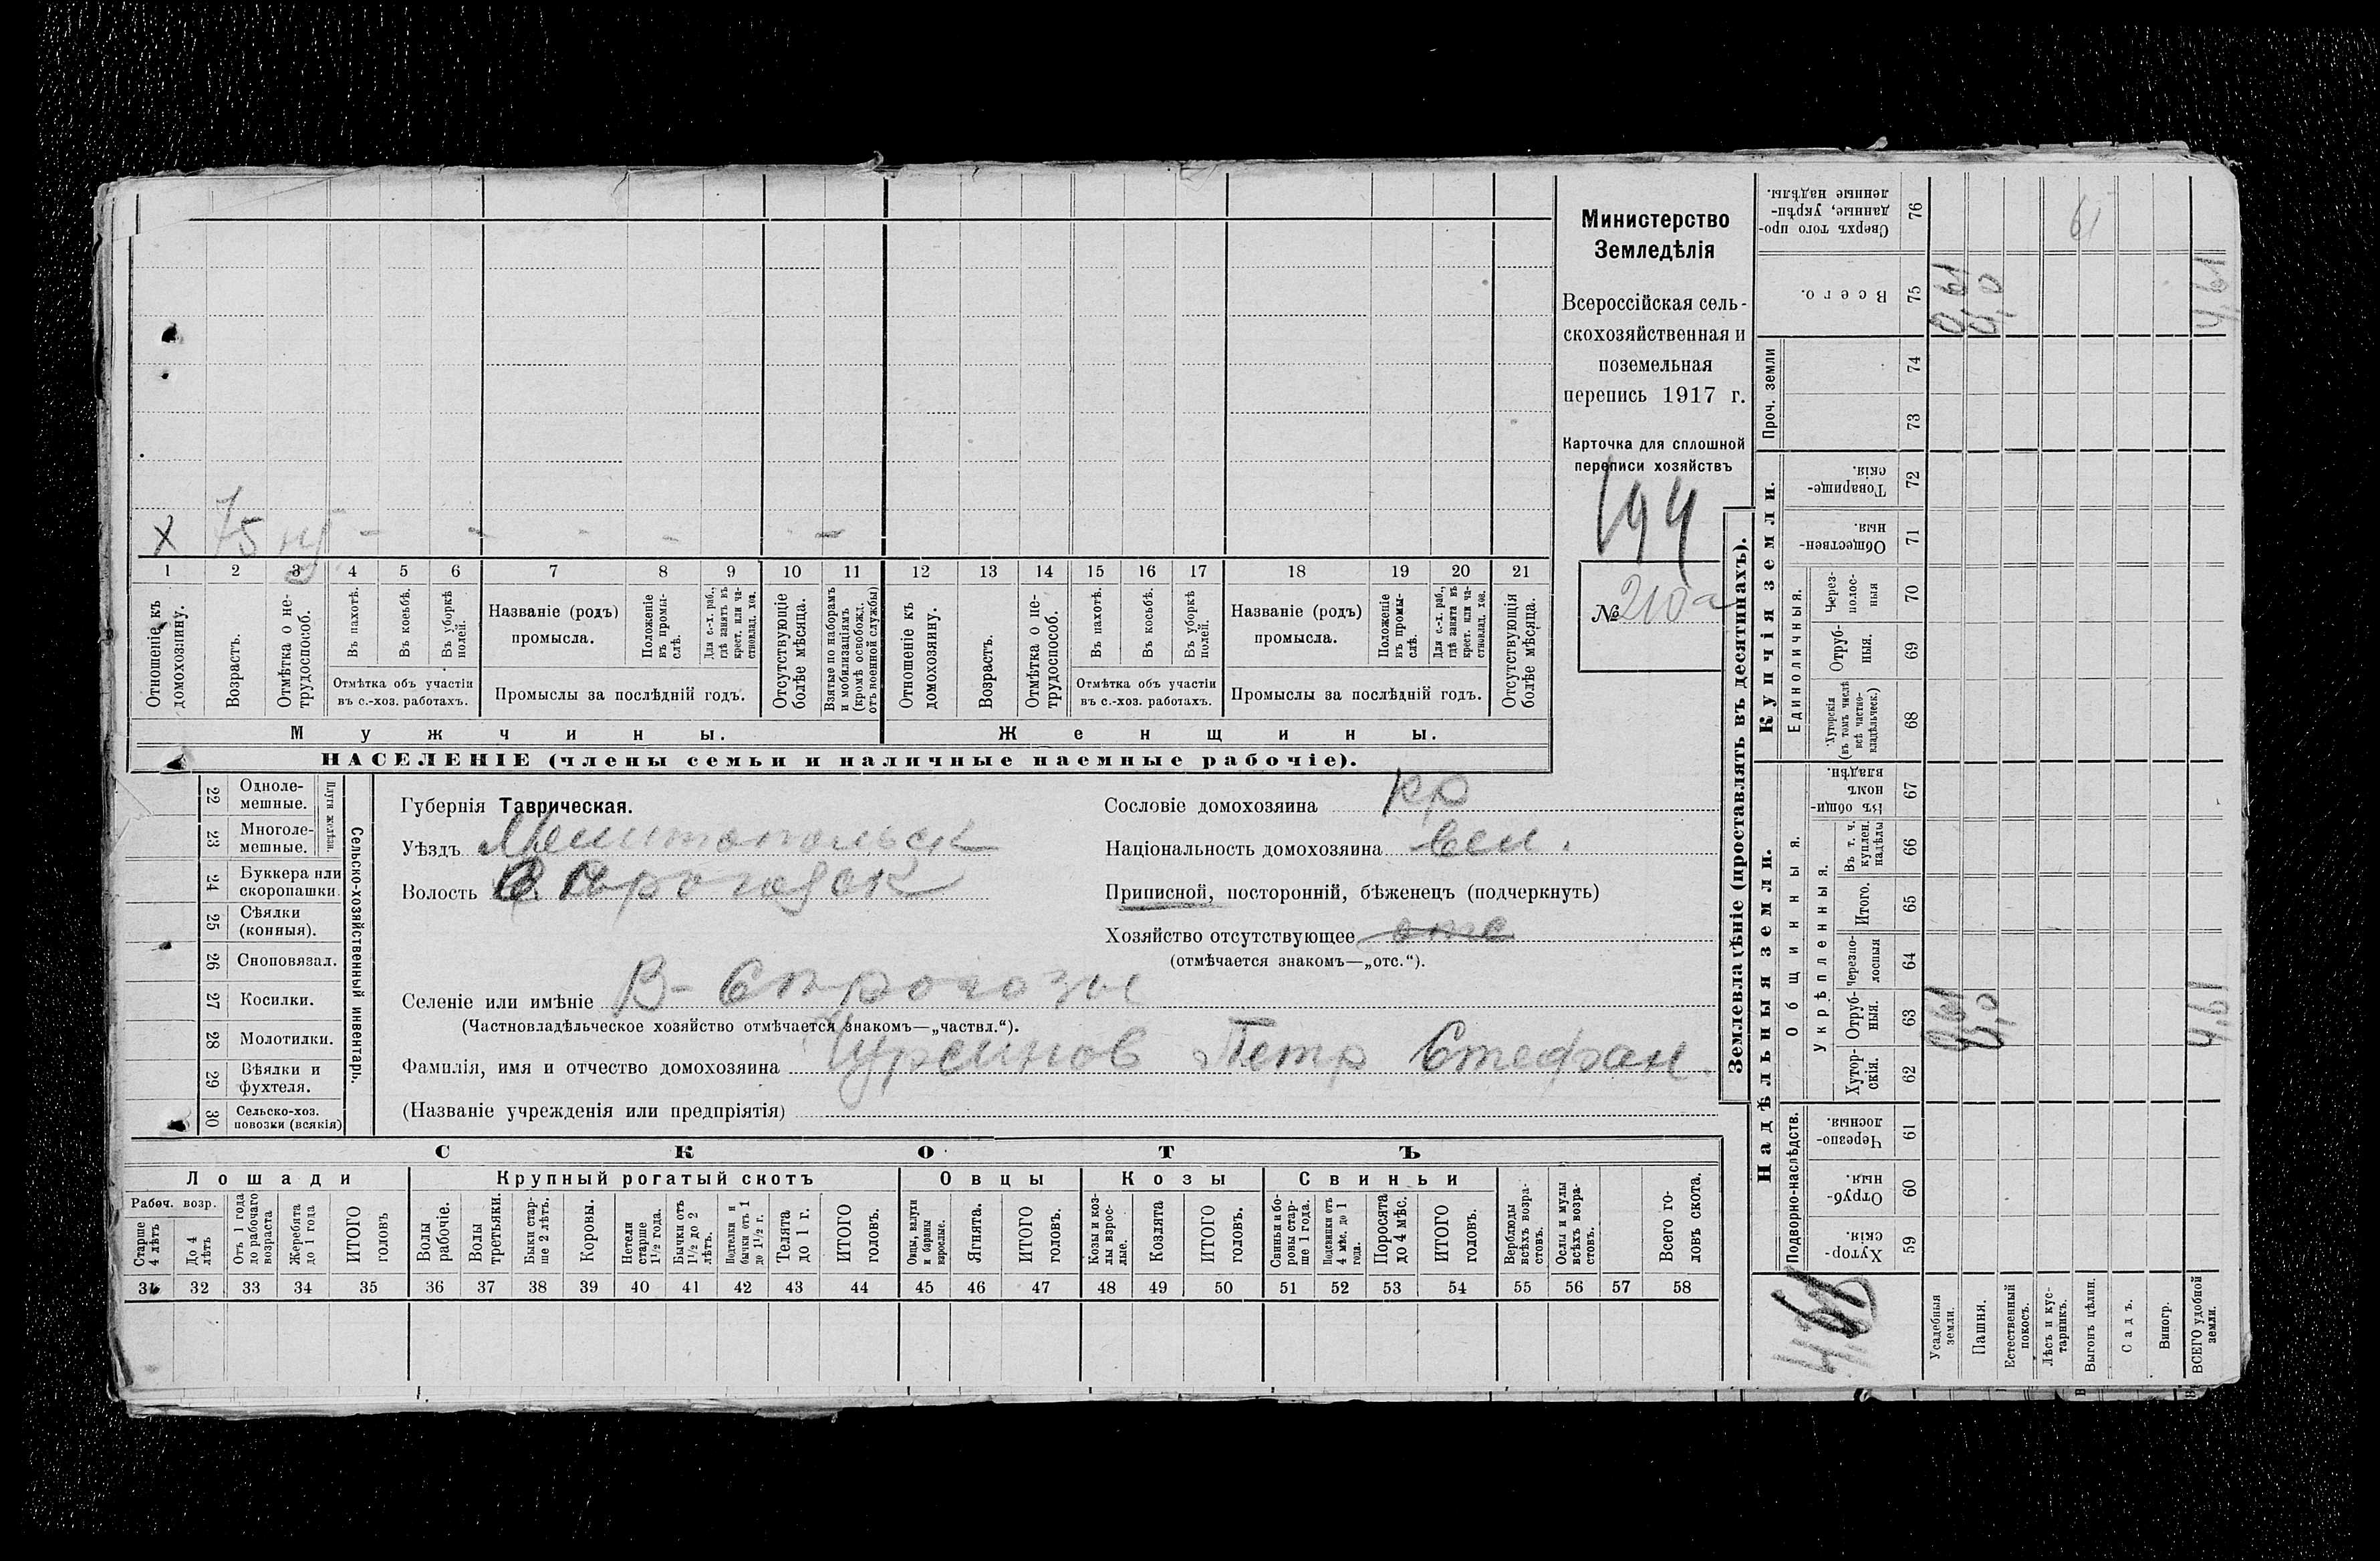 Министерство
Земледѣлія
Всероссійская сель-
скохозяйственная и
поземельная
перепись 1917 г.
Карточка для сплошной
переписи хозяйствъ
194
№ 210а
X 75 - - - - -
1 2 3 4 5 6 7 8 9 10 11 12 13 14 15 16 17 18 19 20 21
Отношеніе къ домохозяину.
Возрастъ.
Отмѣтка о не-трудоспособ.
Въ пахотѣ.
Въ косьбѣ.
Въ уборкѣ полей.
Отмѣтка объ участіи
въ с.-хоз. работахъ.
Названіе (родъ)
промысла.
Положеніе въ промы-слѣ.
Для с.-х. раб., гдѣ занятъ въ крест. или ча-стновлад. хоз.
Промыслы за послѣдній годъ.
Отсутствующіе болѣе мѣсяца.
Взятые по наборамъ и мобилизаціямъ (кромѣ освобожд. отъ военной службы)
Отношеніе къ домохозяину.
Возрастъ.
Отмѣтка о не-трудоспособ.
Въ пахотѣ.
Въ косьбѣ.
Въ уборкѣ полей.
Отмѣтка объ участіи
въ с.-хоз. работахъ.
Названіе (родъ)
промысла.
Положеніе въ промы-слѣ.
Для с.-х. раб., гдѣ занята въ крест. или ча-стновлад. хоз.
Промыслы за послѣдній годъ.
Отсутствующія болѣе мѣсяца.
Мужчины.
Женщины.
НАСЕЛЕНІЕ (члены семьи и наличные наемные рабочіе).
22 Одноле-
мешные.
23 Многоле-
мешные.
Плуги желѣзн.
24 Буккера или
скоропашки.
25 Сѣялки
(конныя).
26 Сноповязал.
27 Косилки.
28 Молотилки.
29 Вѣялки и
фухтеля.
30 Сельско-хоз.
повозки (всякія)
Сельско-хозяйственный инвентарь.
Губернія Таврическая.
Уѣздъ Мелитопольск
Волость В Сѣрогозск
Сословіе домохозяина кр
Національность домохозяина вел.
Приписной, посторонній, бѣженецъ (подчеркнуть)
Хозяйство отсутствующее отс
(отмѣчается знакомъ—„отс.“).
Селеніе или имѣніе В-Сѣрогозы
(Частновладѣльческое хозяйство отмѣчается знакомъ—„частвл.“).
Фамилія, имя и отчество домохозяина Петр Стефан.
(Названіе учрежденія или предпріятія)
СКОТЪ
Лошади
Крупный рогатый скотъ
Овцы
Козы
Свиньи
Рабоч. возр.
Старше 4 лѣтъ
До 4 лѣтъ
Отъ 1 года до рабочаго возраста
Жеребята до 1 года
ИТОГО головъ
Волы рабочіе.
Волы третьяки.
Быки стар-ше 2 лѣтъ.
Коровы.
Нетели старше 1 1/2 года.
Бычки отъ 1 1/2 до 2 лѣтъ.
Подтелки и бычки отъ 1 до 1 1/2 г.
Телята до 1 г.
ИТОГО головъ.
Овцы, валухи и бараны взрослые.
Ягнята.
ИТОГО головъ.
Козы и коз-лы взрос-лые.
Козлята
ИТОГО головъ.
Свиньи и бо-ровы стар-ше 1 года.
Подсвинки отъ 4 мѣс. до 1 года.
Поросята до 4 мѣс.
ИТОГО головъ.
Верблюды всѣхъ возра-стовъ.
Ослы и мулы всѣхъ возра-стовъ.
Всего го-ловъ скота.
31 32 33 34 35 36 37 38 39 40 41 42 43 44 45 46 47 48 49 50 51 52 53 54 55 56 57 58
Землевладѣніе (проставлять въ десятинахъ).
Надѣльныя земли.
Купчія земли.
Проч. земли
Подворно-наслѣдств.
Общинныя.
Укрѣпленныя.
Единоличныя.
Хутор-скія. 59
Отруб-ныя. 60
Черезпо-лосныя. 61
Хутор-скія. 62
Отруб-ныя. 63
черезпо-лосныя 64
Итого. 65
Въ т. ч. куплен. надѣлы 66
Въ общи-номъ владѣн. 67
Хуторскія (въ томъ числѣ всѣ частно-владѣльческ.) 68
Отруб-ныя. 69
Через-полос-ныя 70
Обществен-ныя. 71
Товарище-скія. 72
73
74
Всего. 75
Сверхъ того про-данные, укрѣп-ленные надѣлы. 76
Усадебныя земли. 0,61 0,61
Пашня. 4,0 4,0
Естественный покосъ.
Лѣсъ и кус-тарникъ.
Выгонъ цѣлин.
Садъ.
Виногр.
ВСЕГО удобной земли. 4,61 4,61
61